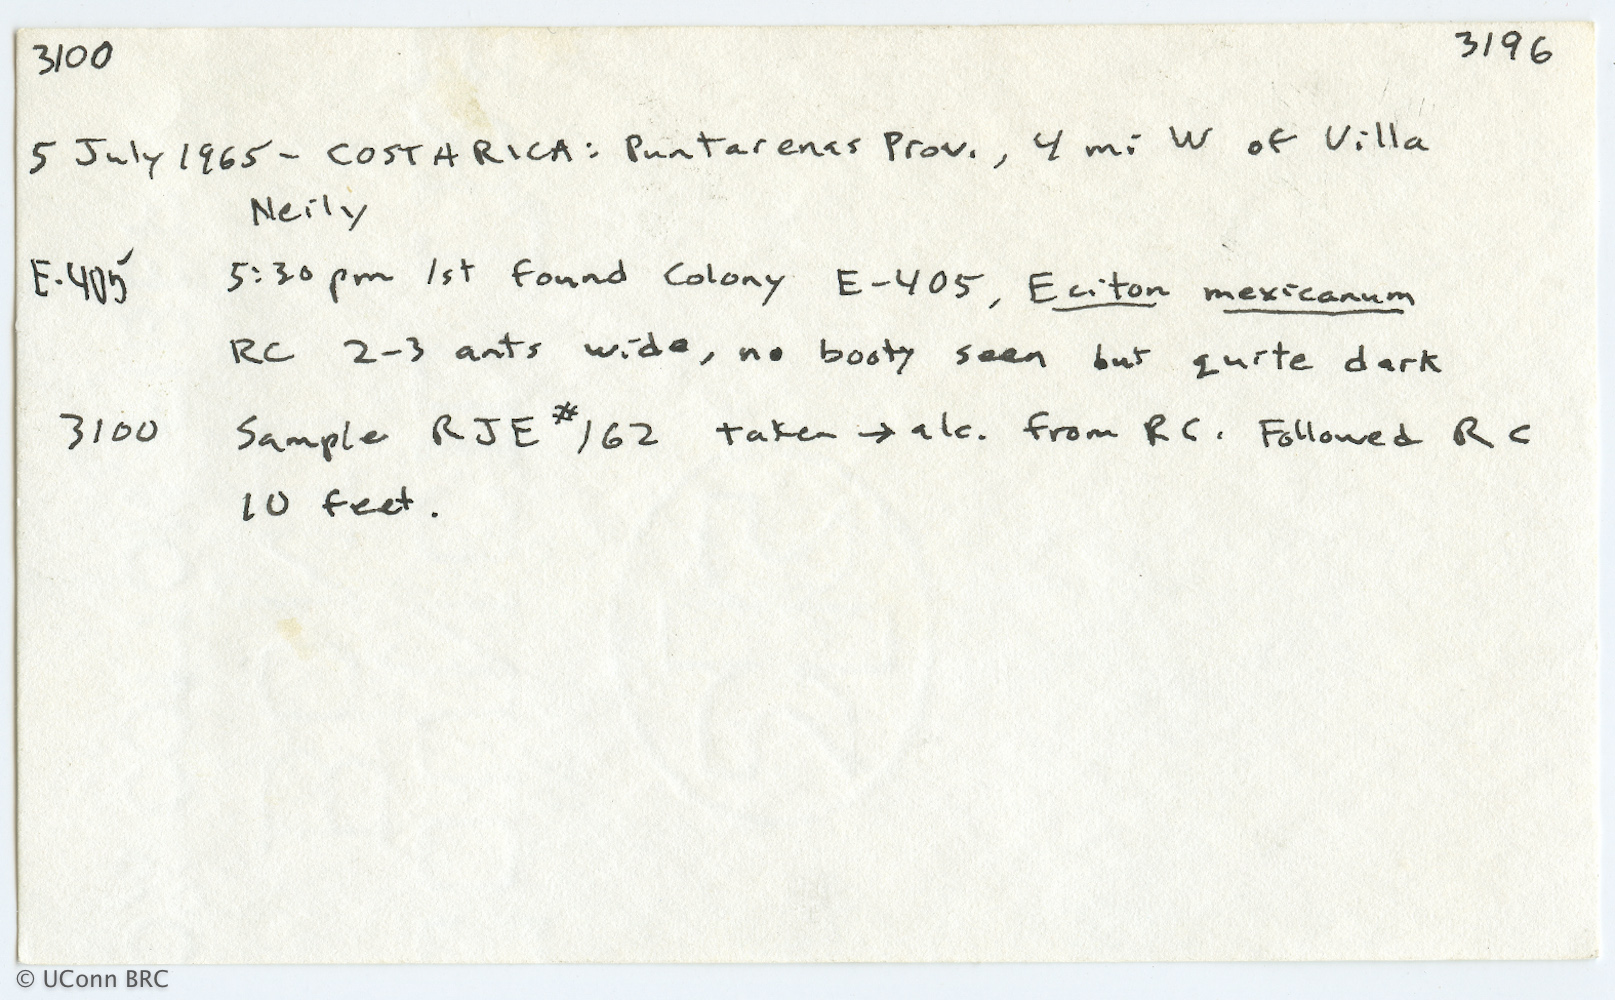 3100 3196
5 July 1965 - COSTA RICA: Puntarenas Prov., 4 mi W of Villa
Neily
E-405 5:30 pm 1st found Colony E-405, Eciton mexicanum
RC 2-3 ants wide, no booty seen but quite dark
3100 Sample RJE #162 taken → alc. from RC. Followed RC
10 feet.
© UConn BRC